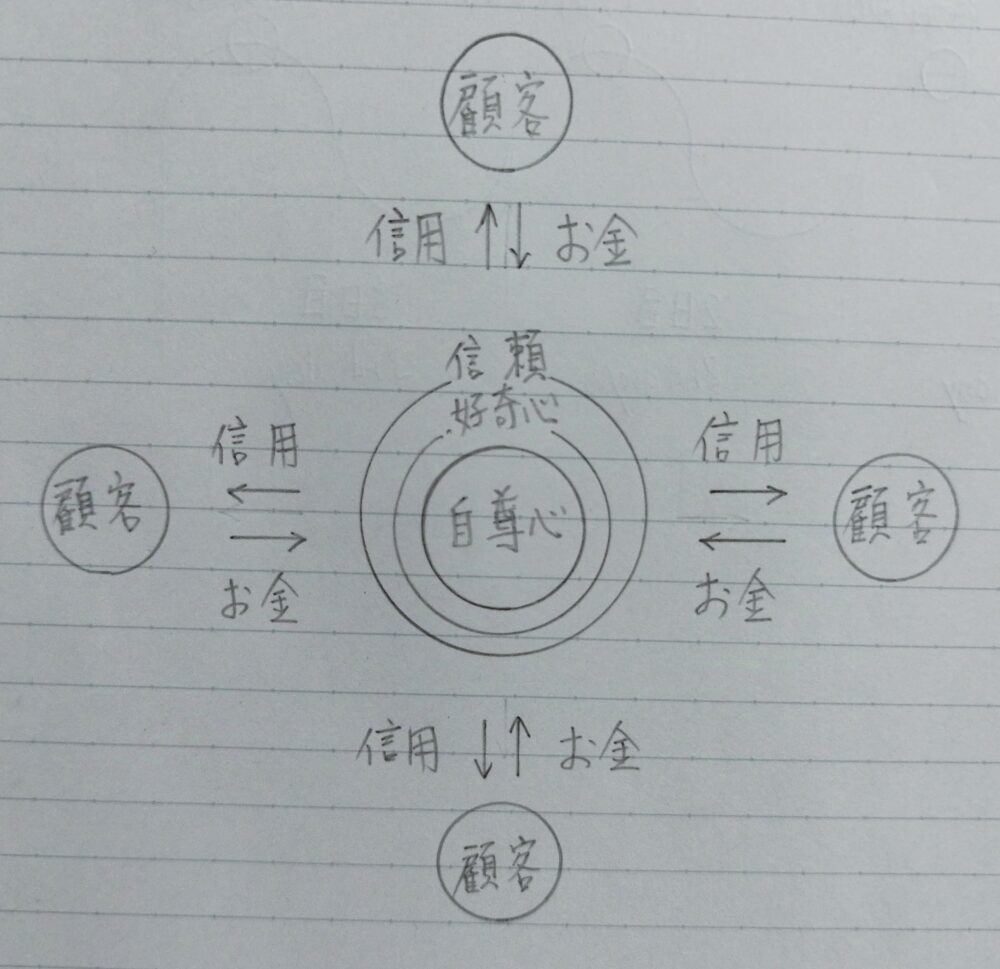 顧客
信用 お金
信頼
好奇心
自尊心
信用
顧客
お金
信用
顧客
お金
信用 お金
顧客